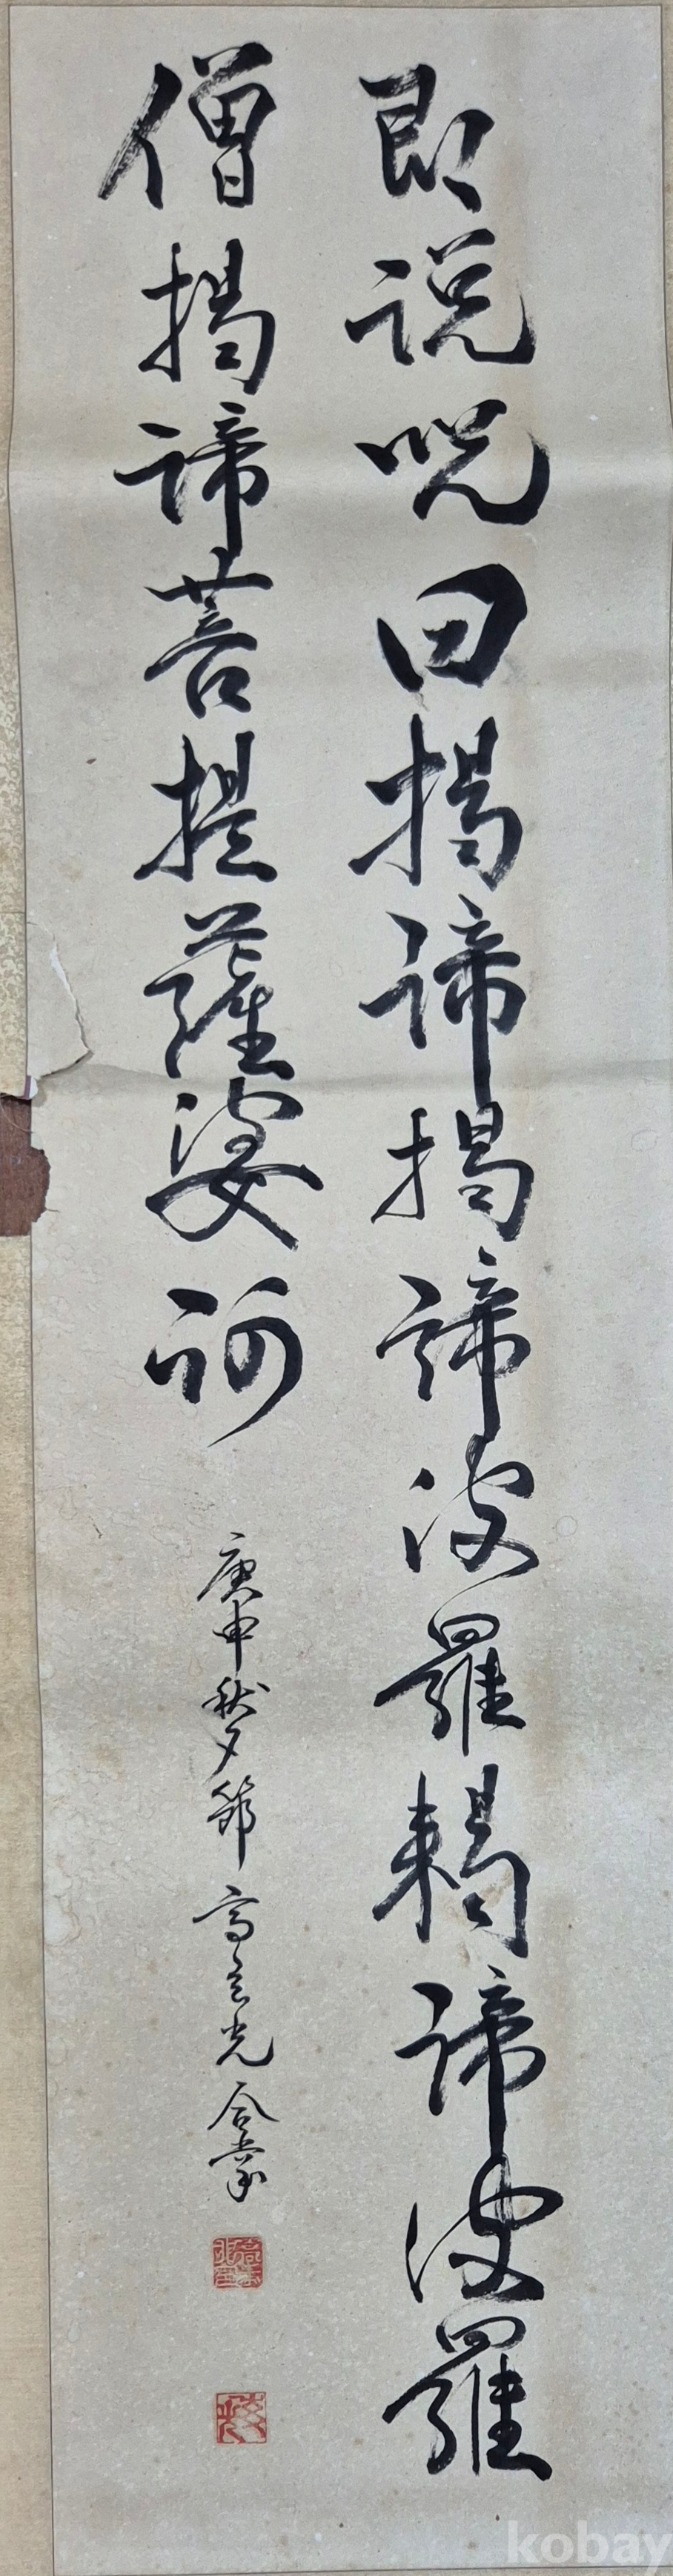 即說呪曰揭諦揭諦波羅羯諦波羅
僧揭諦菩提薩婆訶
庚申秋夕節 高光合掌
kobay